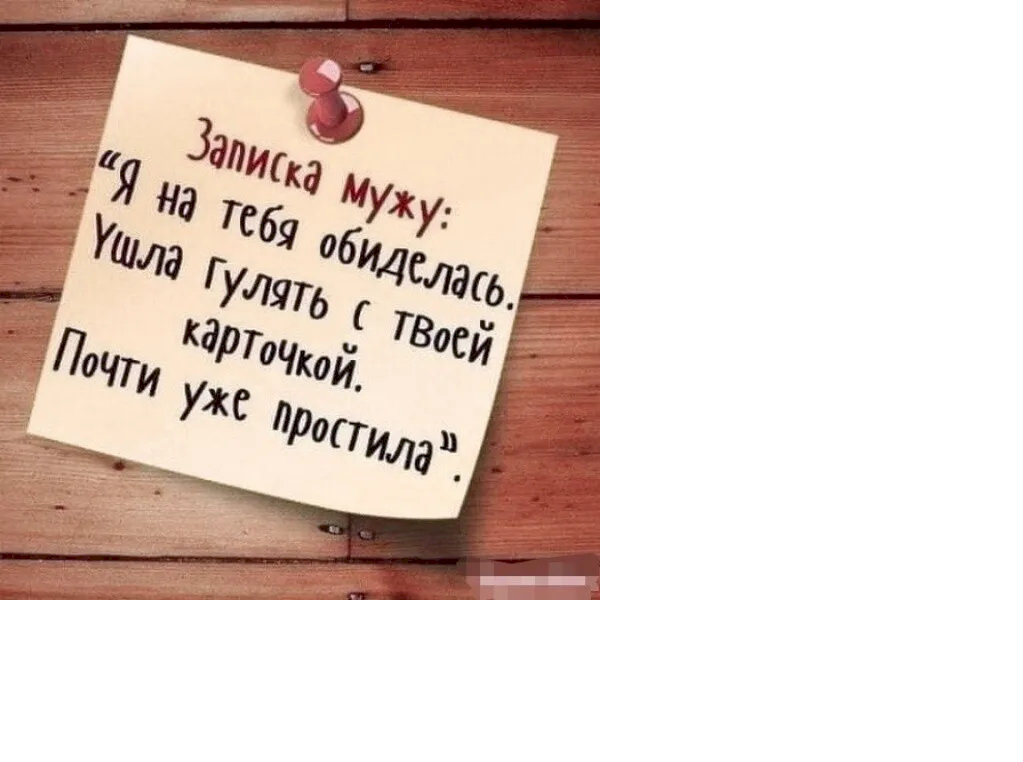 Записка мужу:
“Я на тебя обиделась.
Ушла гулять с твоей
карточкой.
Почти уже простила”.